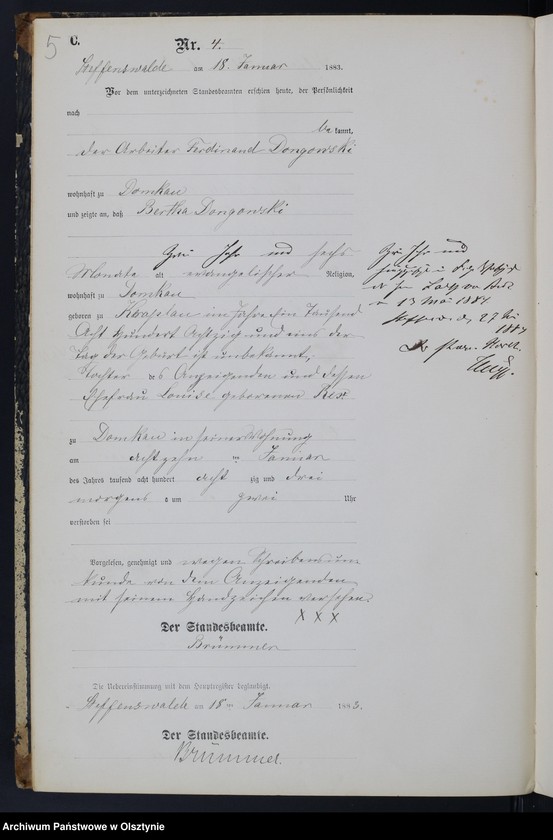 5
C.
Nr. 4.
Steffenswalde am 18. Januar 1883.
Vor dem unterzeichneten Standesbeamten erschien heute, der Persönlichkeit
nach
be kannt,
der Arbeiter Ferdinand Dongowski
wohnhaft zu Domkau
und zeigte an, daß Bertha Dongowski
Zwei Jahr und sechs
Monate alt evangelischer Religion,
wohnhaft zu Domkau
geboren zu im Jahre Ein Tausend
Acht Hundert Achtzig und eins der
Tag der Geburt ist unbekannt,
Tochter des Anzeigenden und dessen
Ehefrau Louise geborenen Rex
zu Domkau in seiner Wohnung
am achtzehn ten Januar
des Jahres tausend acht hundert acht zig und drei
morgens um zwei Uhr
verstorben sei
Vorgelesen, genehmigt und wegen Schreibensun
kunde von dem Anzeigenden
mit seinem Handzeichen versehen.
X X X
Der Standesbeamte.
Brümmer
Die Uebereinstimmung mit dem Hauptregister beglaubigt.
Steffenswalde am 18ten Januar 1883.
Der Standesbeamte.
Brümmer.
Zwei Jahr und
13 Mai 1884
1884
Archiwum Państwowe w Olsztynie